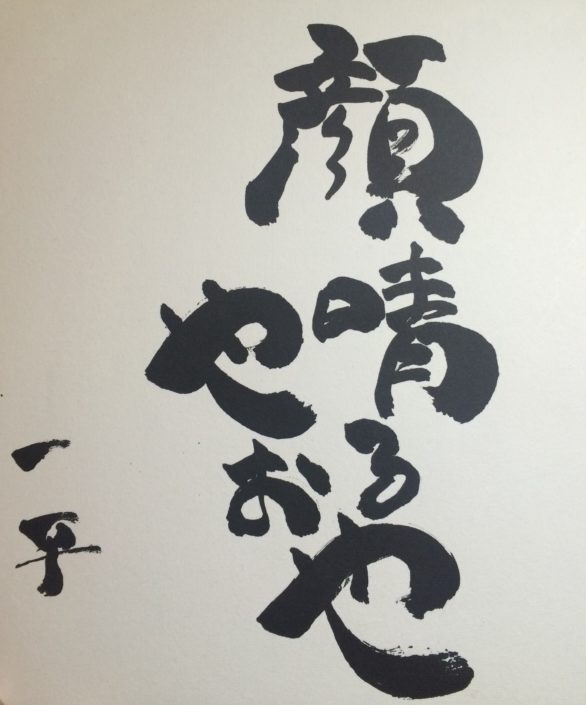 顔晴るや
やお
一平